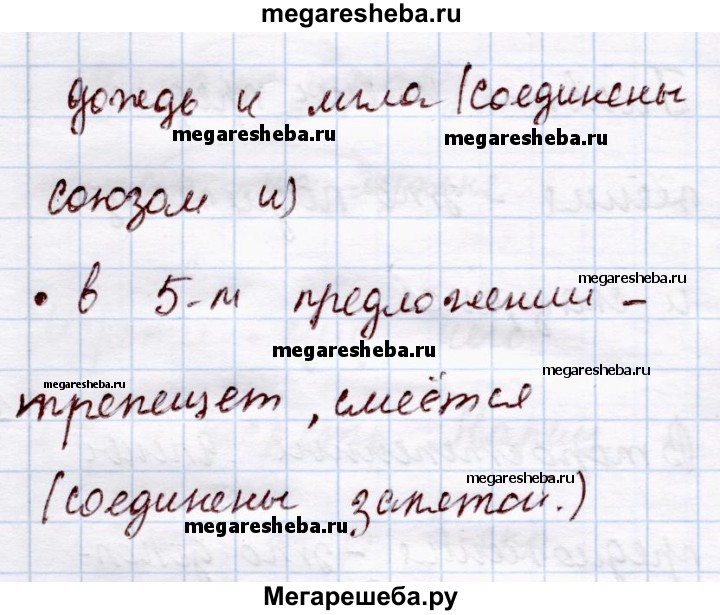 megaresheba.ru
дождь и мгла (соединены
megaresheba.ru
megaresheba.ru
союзом и)
• в 5-м предложении -
megaresheba.ru
megaresheba.ru
трепещет, смеётся
megaresheba.ru
megaresheba.ru
(соединены запятой.)
megaresheba.ru
megaresheba.ru
Мегарешеба.ру